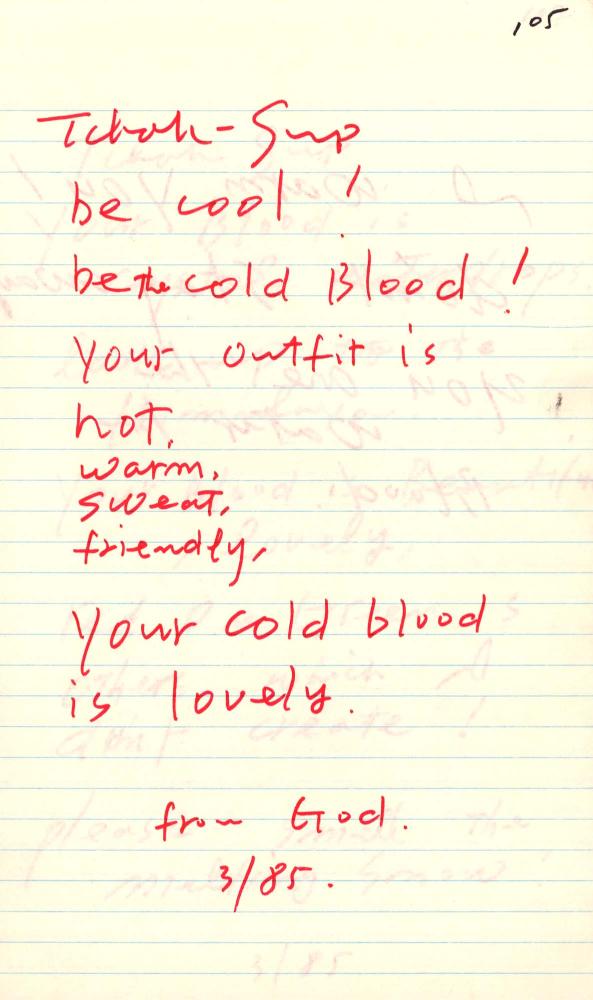 105
Tchah-Sup
be cool!
be the cold Blood!
your outfit is
hot,
warm,
sweat,
friendly,
your cold blood
is lovely.
from God.
3/85.